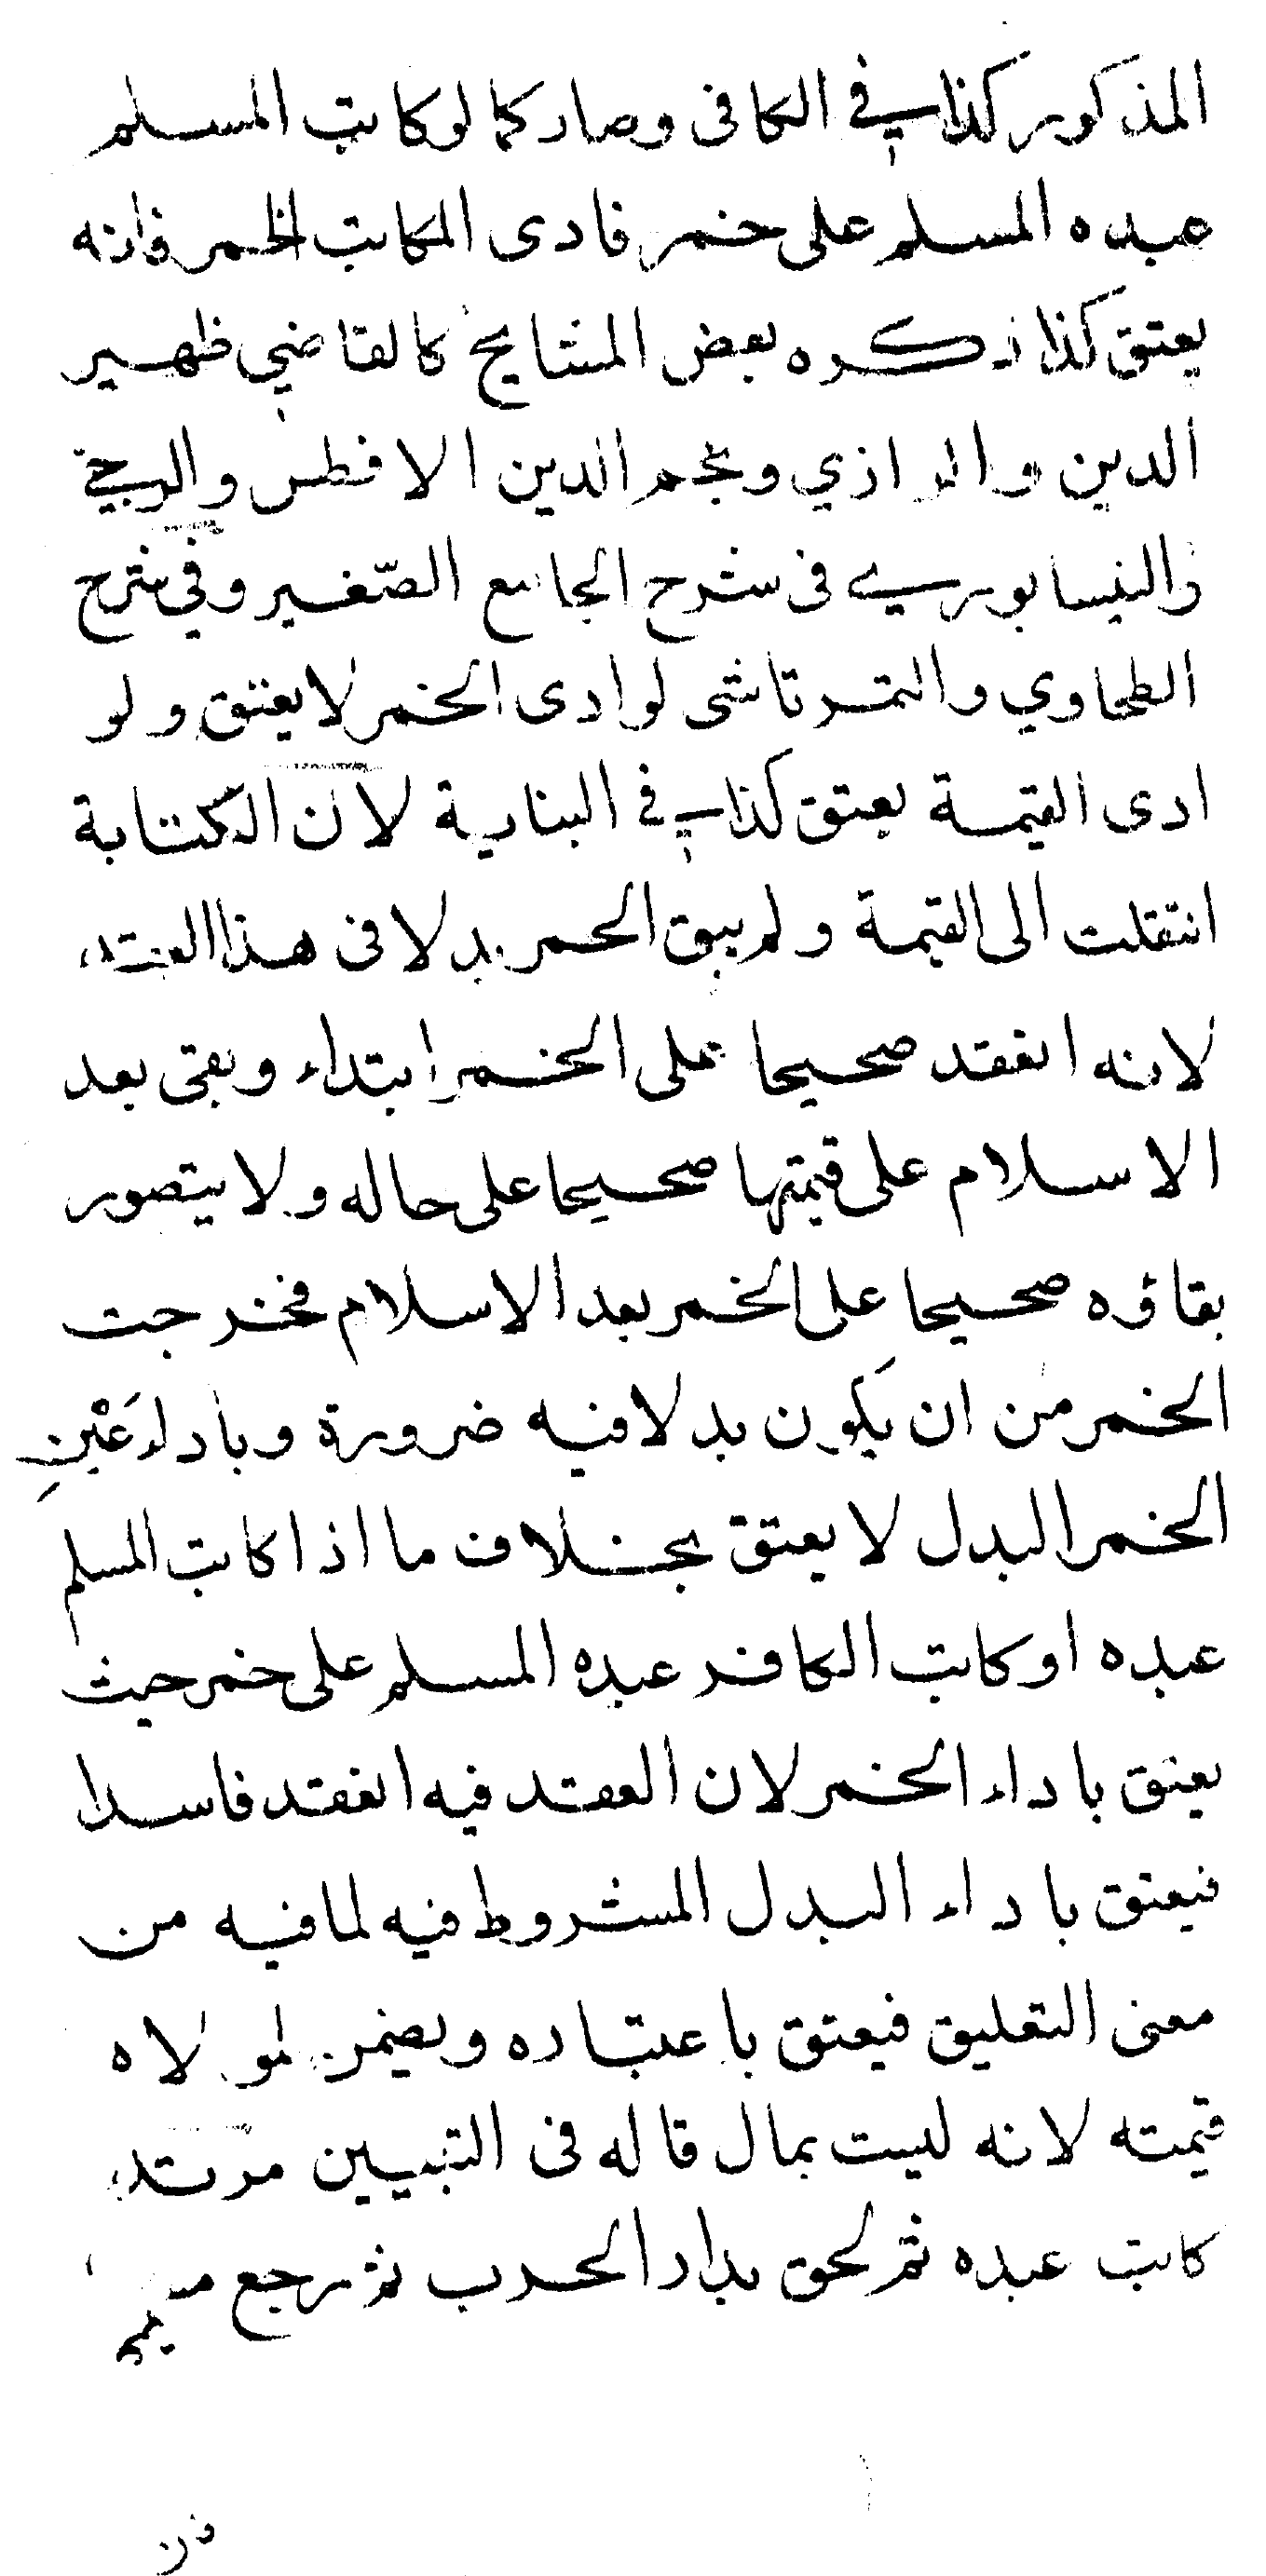 المذكور كذا في الكافى وصار كما لو كاتب المسلم
عبده المسلم على خمر فادى المكاتب الخمر فانه
يعتق كذا ذكره بعض المشايخ كالقاضي ظهير
الدين والرازي ونجم الدين الافطس والبرجي
والنيسابوري فى شرح الجامع الصّغير وفي شرح
الطحاوي والتمرتاشى لو ادى الخمر لا يعتق ولو
ادى القيمة يعتق كذا في البناية لان الكتابة
انتقلت الى القيمة ولم يبق الخمر بدلا فى هذا العقد
لانه انعقد صحيحا على الخمر ابتداء وبقى بعد
الاسلام على قيمتها صحيحا على حاله ولا يتصور
بقاؤه صحيحا على الخمر بعد الاسلام فخرجت
الخمر من ان يكون بدلا فيه ضرورة وبأداء عَيْنِ
الخمر البدل لا يعتق بخلاف ما اذا كاتب المسلم
عبده او كاتب الكافر عبده المسلم على خمر حيث
يعتق باداء الخمر لان العقد فيه انعقد فاسدا
فيعتق باداء البدل المشروط فيه لما فيه من
معنى التعليق فيعتق باعتباره ويضمن لمولاه
قيمته لانه ليست بمال قاله فى التبيين مرتد
كاتب عبده ثم لحق بدار الحرب ثم رجع